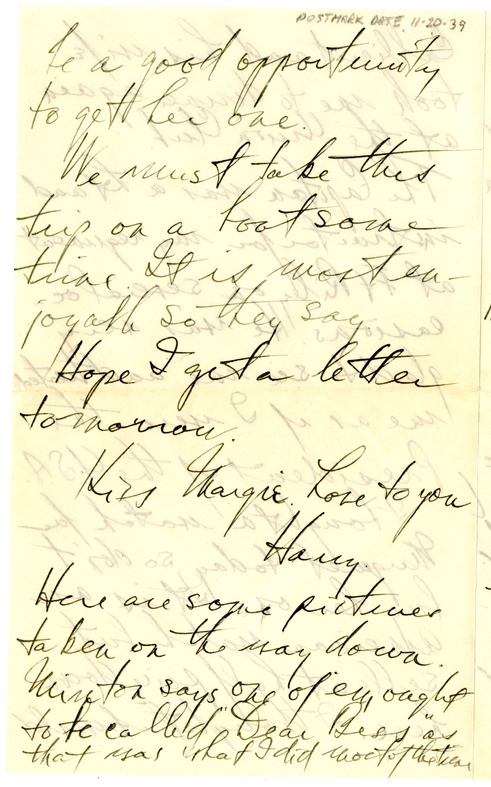 POSTMARK DATE 11-20-39
be a good opportunity
to get her one.
We must take this
trip on a boat some
time. It is most en-
joyable so they say.
Hope I get a letter
tomorrow.
Kiss Margie. Love to you
Harry.
Here are some pictures
taken on the way down.
Minton says one of 'em ought
to be called "Dear Bess" as
that was what I did most of the time